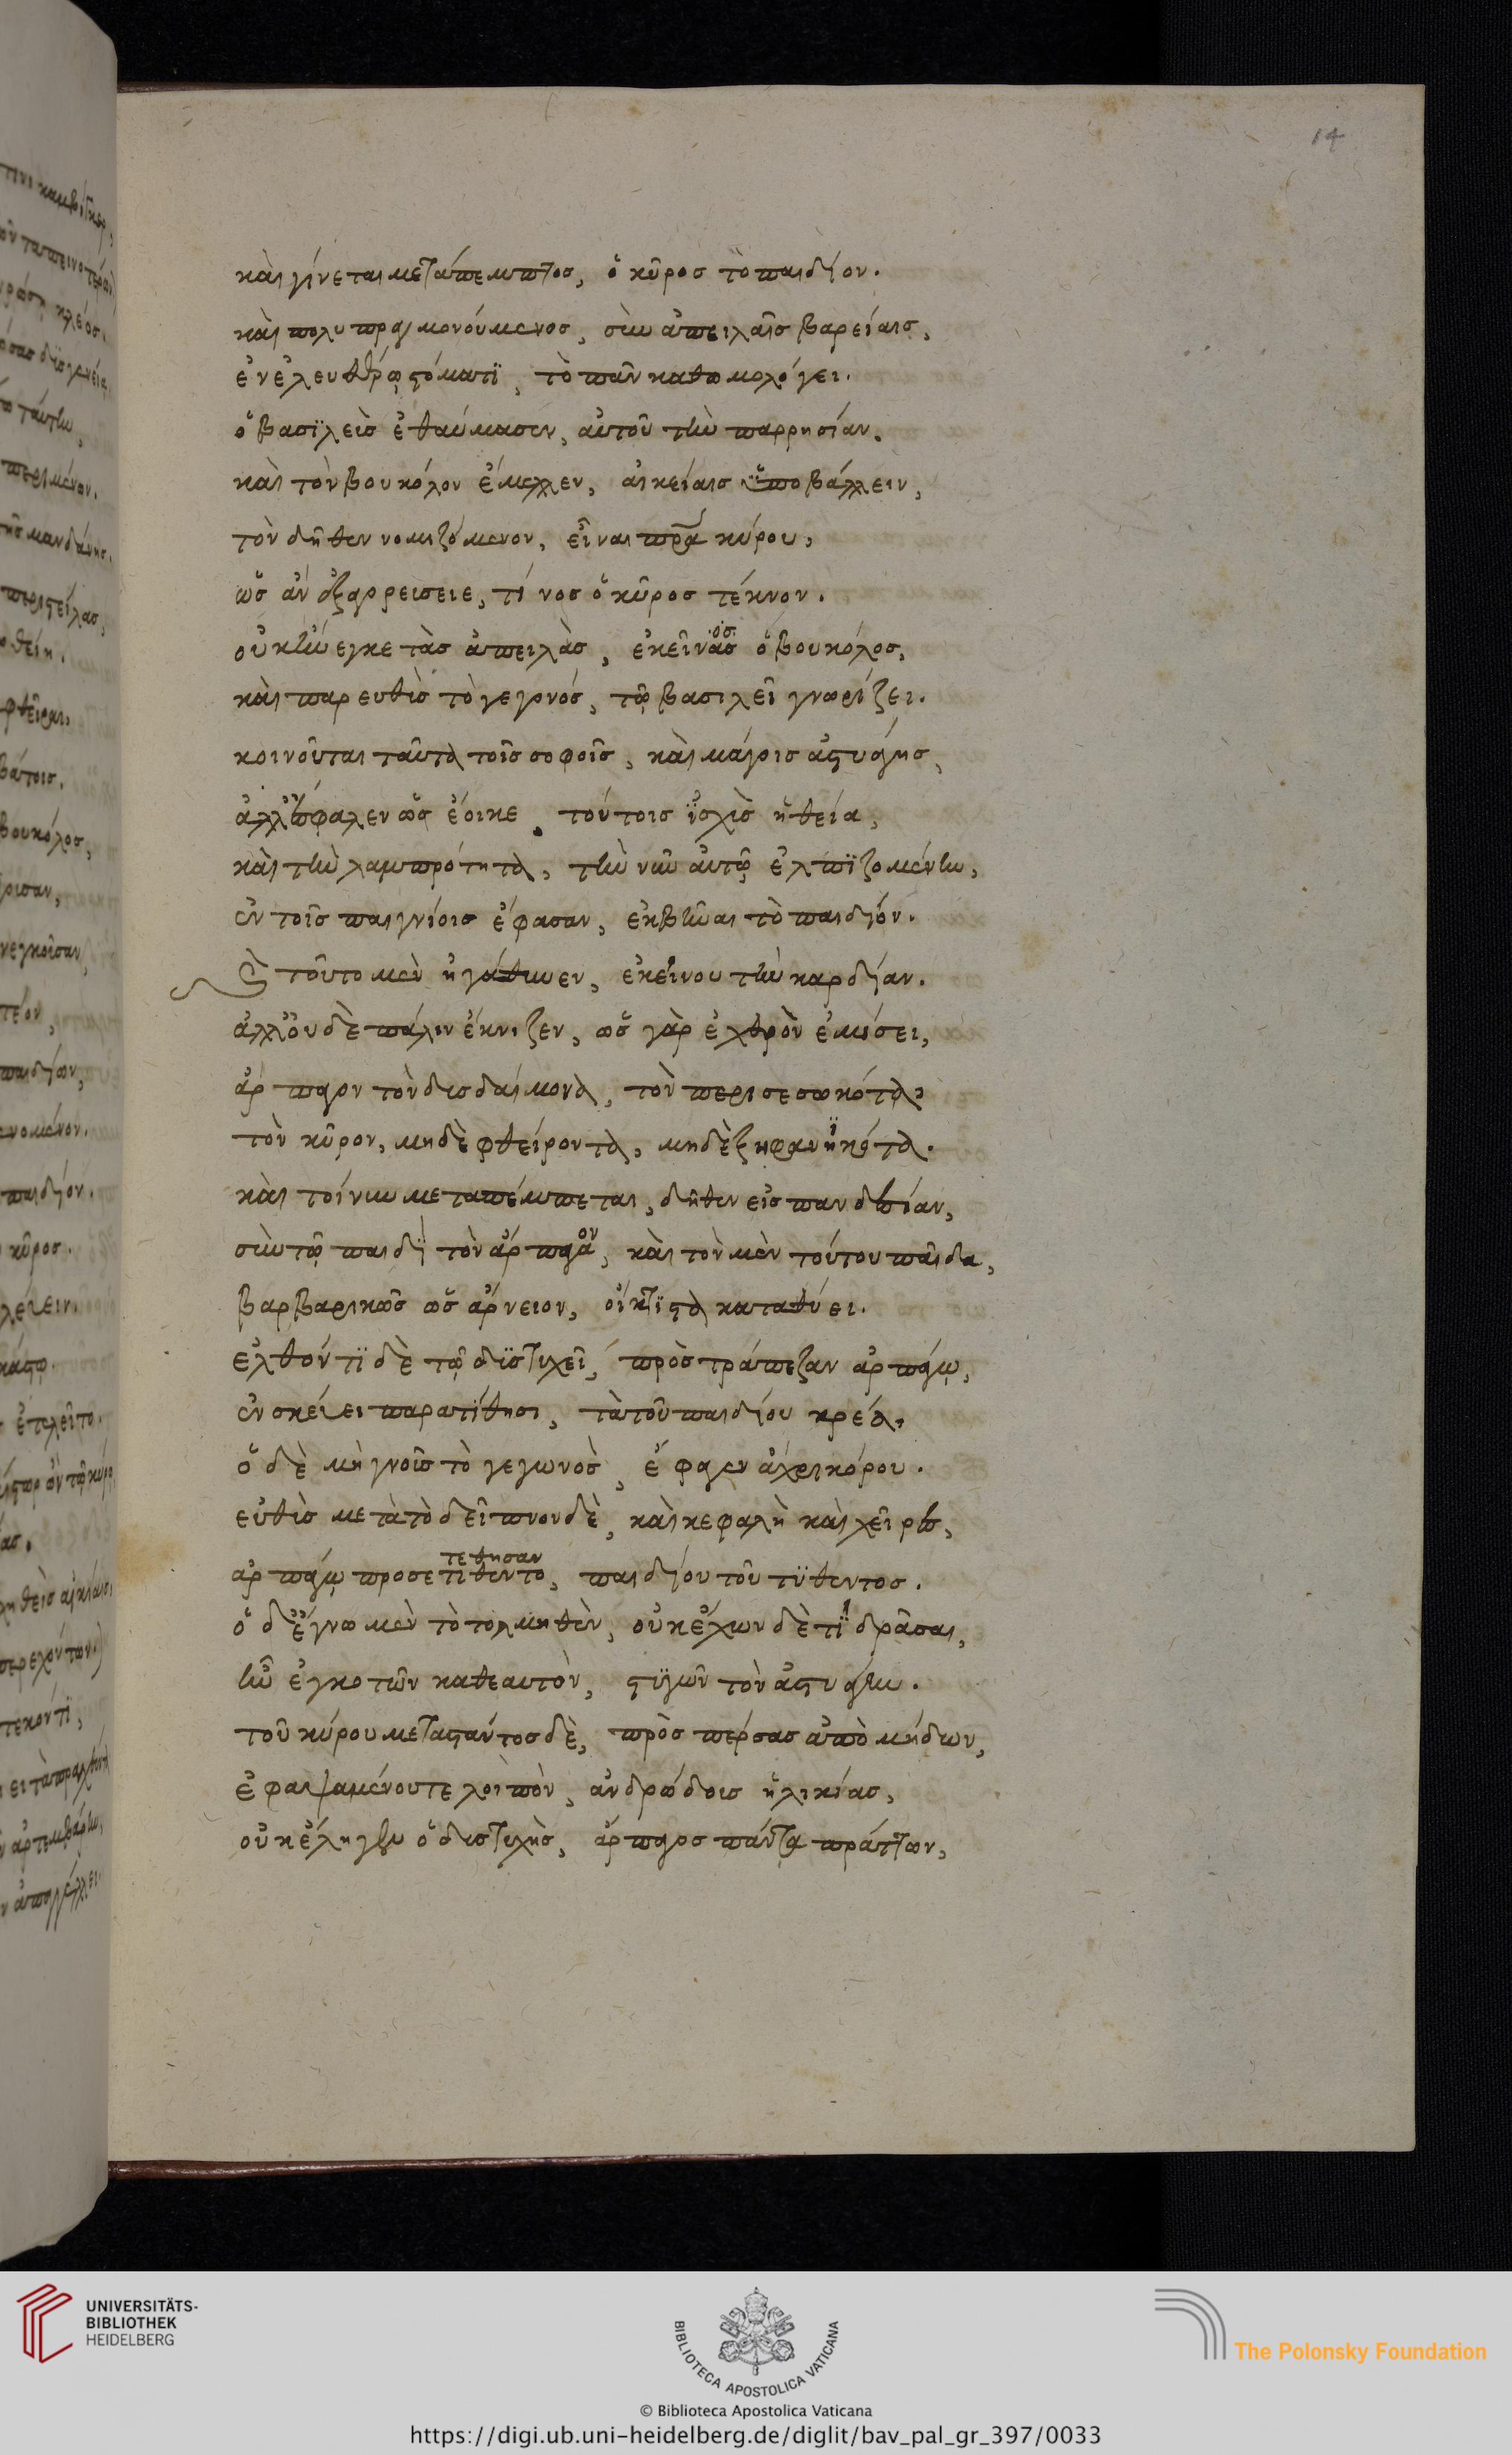 14
καὶ γίνεται μετάπεμπτος, ὁ κῦρος τὸ παιδίον.
καὶ πολυπραγμονούμενος, σὺν ἀπειλαῖς βαρείαις,
ἐν ἐλευθέρῳ στόματϊ, τὸ πᾶν καθωμολόγει.
ὁ βασϊλεὺς ἐθαύμασεν, αὐτοῦ τὴν παρρησίαν.
καὶ τὸν βουκόλον ἔμελλεν, αἰκείαις ὑποβάλλειν,
τὸν δῆθεν νομιζόμενον, εἶναι πρα κύρου,
ὡς ἂν ἐξαγορεύσειε, τίνος ὁ κῦρος τέκνον.
οὐκ ἤνεγκε τὰς ἀπειλὰς, ἐκεῖνας ος ὁ βουκόλος,
καὶ παρευθὺς τὸ γεγονός, τῷ βασιλεῖ γνωρίζει.
κοινοῦται ταῦτα τοῖς σοφοῖς, καὶ μάγοις ἀστυάγης,
ἀλλ' ἔσφαλεν ὡς ἔοικε, τούτοις ἰσχὺς ἡ θεία,
καὶ τὴν λαμπρότητα, τὴν νῦν αὐτῷ ἐλπϊζομένην,
ἐν τοῖς παιγνίοις ἔφασαν, ἐκβῆναι τὸ παιδίον.
Ὃ τοῦτο μὲν ἠγάθυνεν, ἐκείνου τὴν καρδίαν.
ἀλλ' οὐδὲ πάλιν ἔκνιζεν, ὡς γὰρ ἐχθρὸν ἐμίσει,
ἅρπαγον τὸν δυσδαίμονα, τὸν περισεσωκότα,
τὸν κῦρον, μηδὲ φθείροντα, μηδ' ἐξηφανηκότα.
καὶ τοίνυν μεταπέμπεται, δῆθεν εἰς πανδεσίαν,
σὺν τῷ παιδὶ τὸν ἅρπαγα ον, καὶ τὸν μὲν τούτου παῖδα,
βαρβαρικῶς ὡς ἄρνειον, οἴκτϊστα καταθύει.
ἐλθόντϊ δὲ τῷ δϋστυχεῖ, πρὸς τράπεζαν ἁρπάγῳ,
ἐν σκεύει παρατίθησι, τὰ τοῦ παιδίου κρέα.
ὁ δὲ μὴ γνοὺς τὸ γεγωνὸς, ἔφαγεν ἄχρι κόρου.
εὐθὺς μετὰ τὸ δεῖπνον δὲ, καὶ κεφαλὴ καὶ χεῖρες,
τεθησαν
ἁρπάγῳ προσετίθεντο, παιδίου τοῦ τϋθεντος.
ὁ δ' ἔγνω μὲν τὸ τολμηθὲν, οὐκ ἔχων δὲ τϊ δρᾶσαι,
ἦν ἐγκοτῶν καθεαυτὸν, στϋγῶν τὸν ἀστυάγην.
τοῦ κύρου μεταστάντος δὲ, πρὸς πέρσας ἀπὸ μήδων,
ἐφαψαμένου τε λοιπὸν, ἀνδρώδοις ἡλικίας,
οὐκ ἔληγεν ὁ δυστυχὴς, ἅρπαγος πάντα πράττων,
UNIVERSITÄTS-
BIBLIOTHEK
HEIDELBERG
BIBLIOTECA APOSTOLICA VATICANA
The Polonsky Foundation
© Biblioteca Apostolica Vaticana
https://digi.ub.uni-heidelberg.de/diglit/bav_pal_gr_397/0033